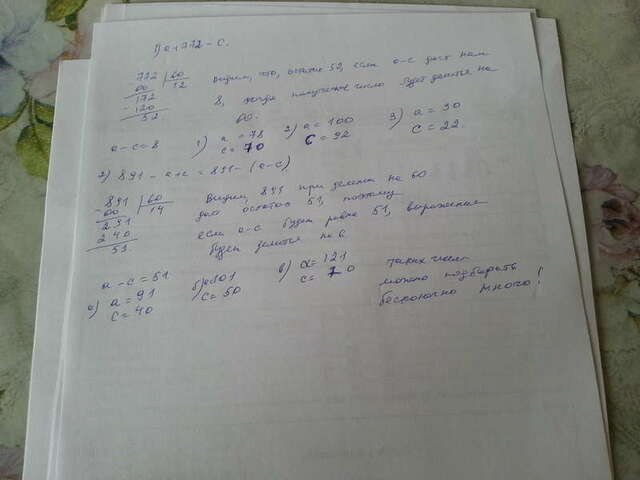 1) a+772-c.
772 | 60
60 12
172
120
52
Видим, что, остаток 52, если a-c даст нам
8, тогда полученное число будет делится на
60.
a-c=8 1) a=78 2) a=100 3) a=30
c=70 c=92 c=22.
2) 891-a+c = 891-(a-c)
891 | 60
60 14
291
240
51.
Видим, 891 при делении на 60
дало остаток 51, поэтому
если a-c будет равна 51, выражение
будет делится на 6.
a-c=51.
а) a=91 б) a=101 в) a=121
c=40 c=50 c=70
таких чисел
можно подбирать
бесконечно много!